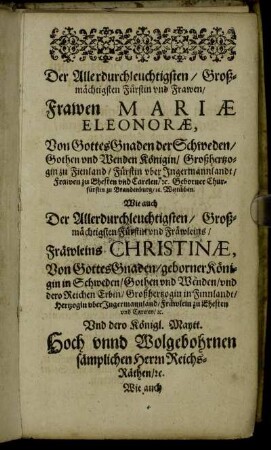 Der Allerdurchleuchtigsten / Groß-
mächtigsten Fürstin vnd Frawen /
Frawen MARIÆ
ELEONORÆ,
Von Gottes Gnaden der Schweden /
Gothen vnd Wenden Königin / Großhertzo-
gin zu Fienland / Fürstin vber Ingermannlandt /
Frawen zu Ehesten vnd Carelen / ꝛc. Geborner Chur-
fürstin zu Brandenburg / ꝛc. Wittiben.
Wie auch
Der Allerdurchleuchtigsten / Groß-
mächtigsten Fürstin vnd Fräwleins /
Fräwleins CHRISTINÆ,
Von Gottes Gnaden / geborner Köni-
gin in Schweden / Gothen vnd Wenden / vnd
dero Reichen Erbin / Großhertzogin in Finnlandt /
Hertzogin vber Ingermannland / Fräwlein zu Ehesten
vnd Carelen / ꝛc.
Vnd dero Königl. Maytt.
Hoch vnnd Wolgebohrnen
sämptlichen Herrn Reichs-
Räthen / ꝛc.
Wie auch